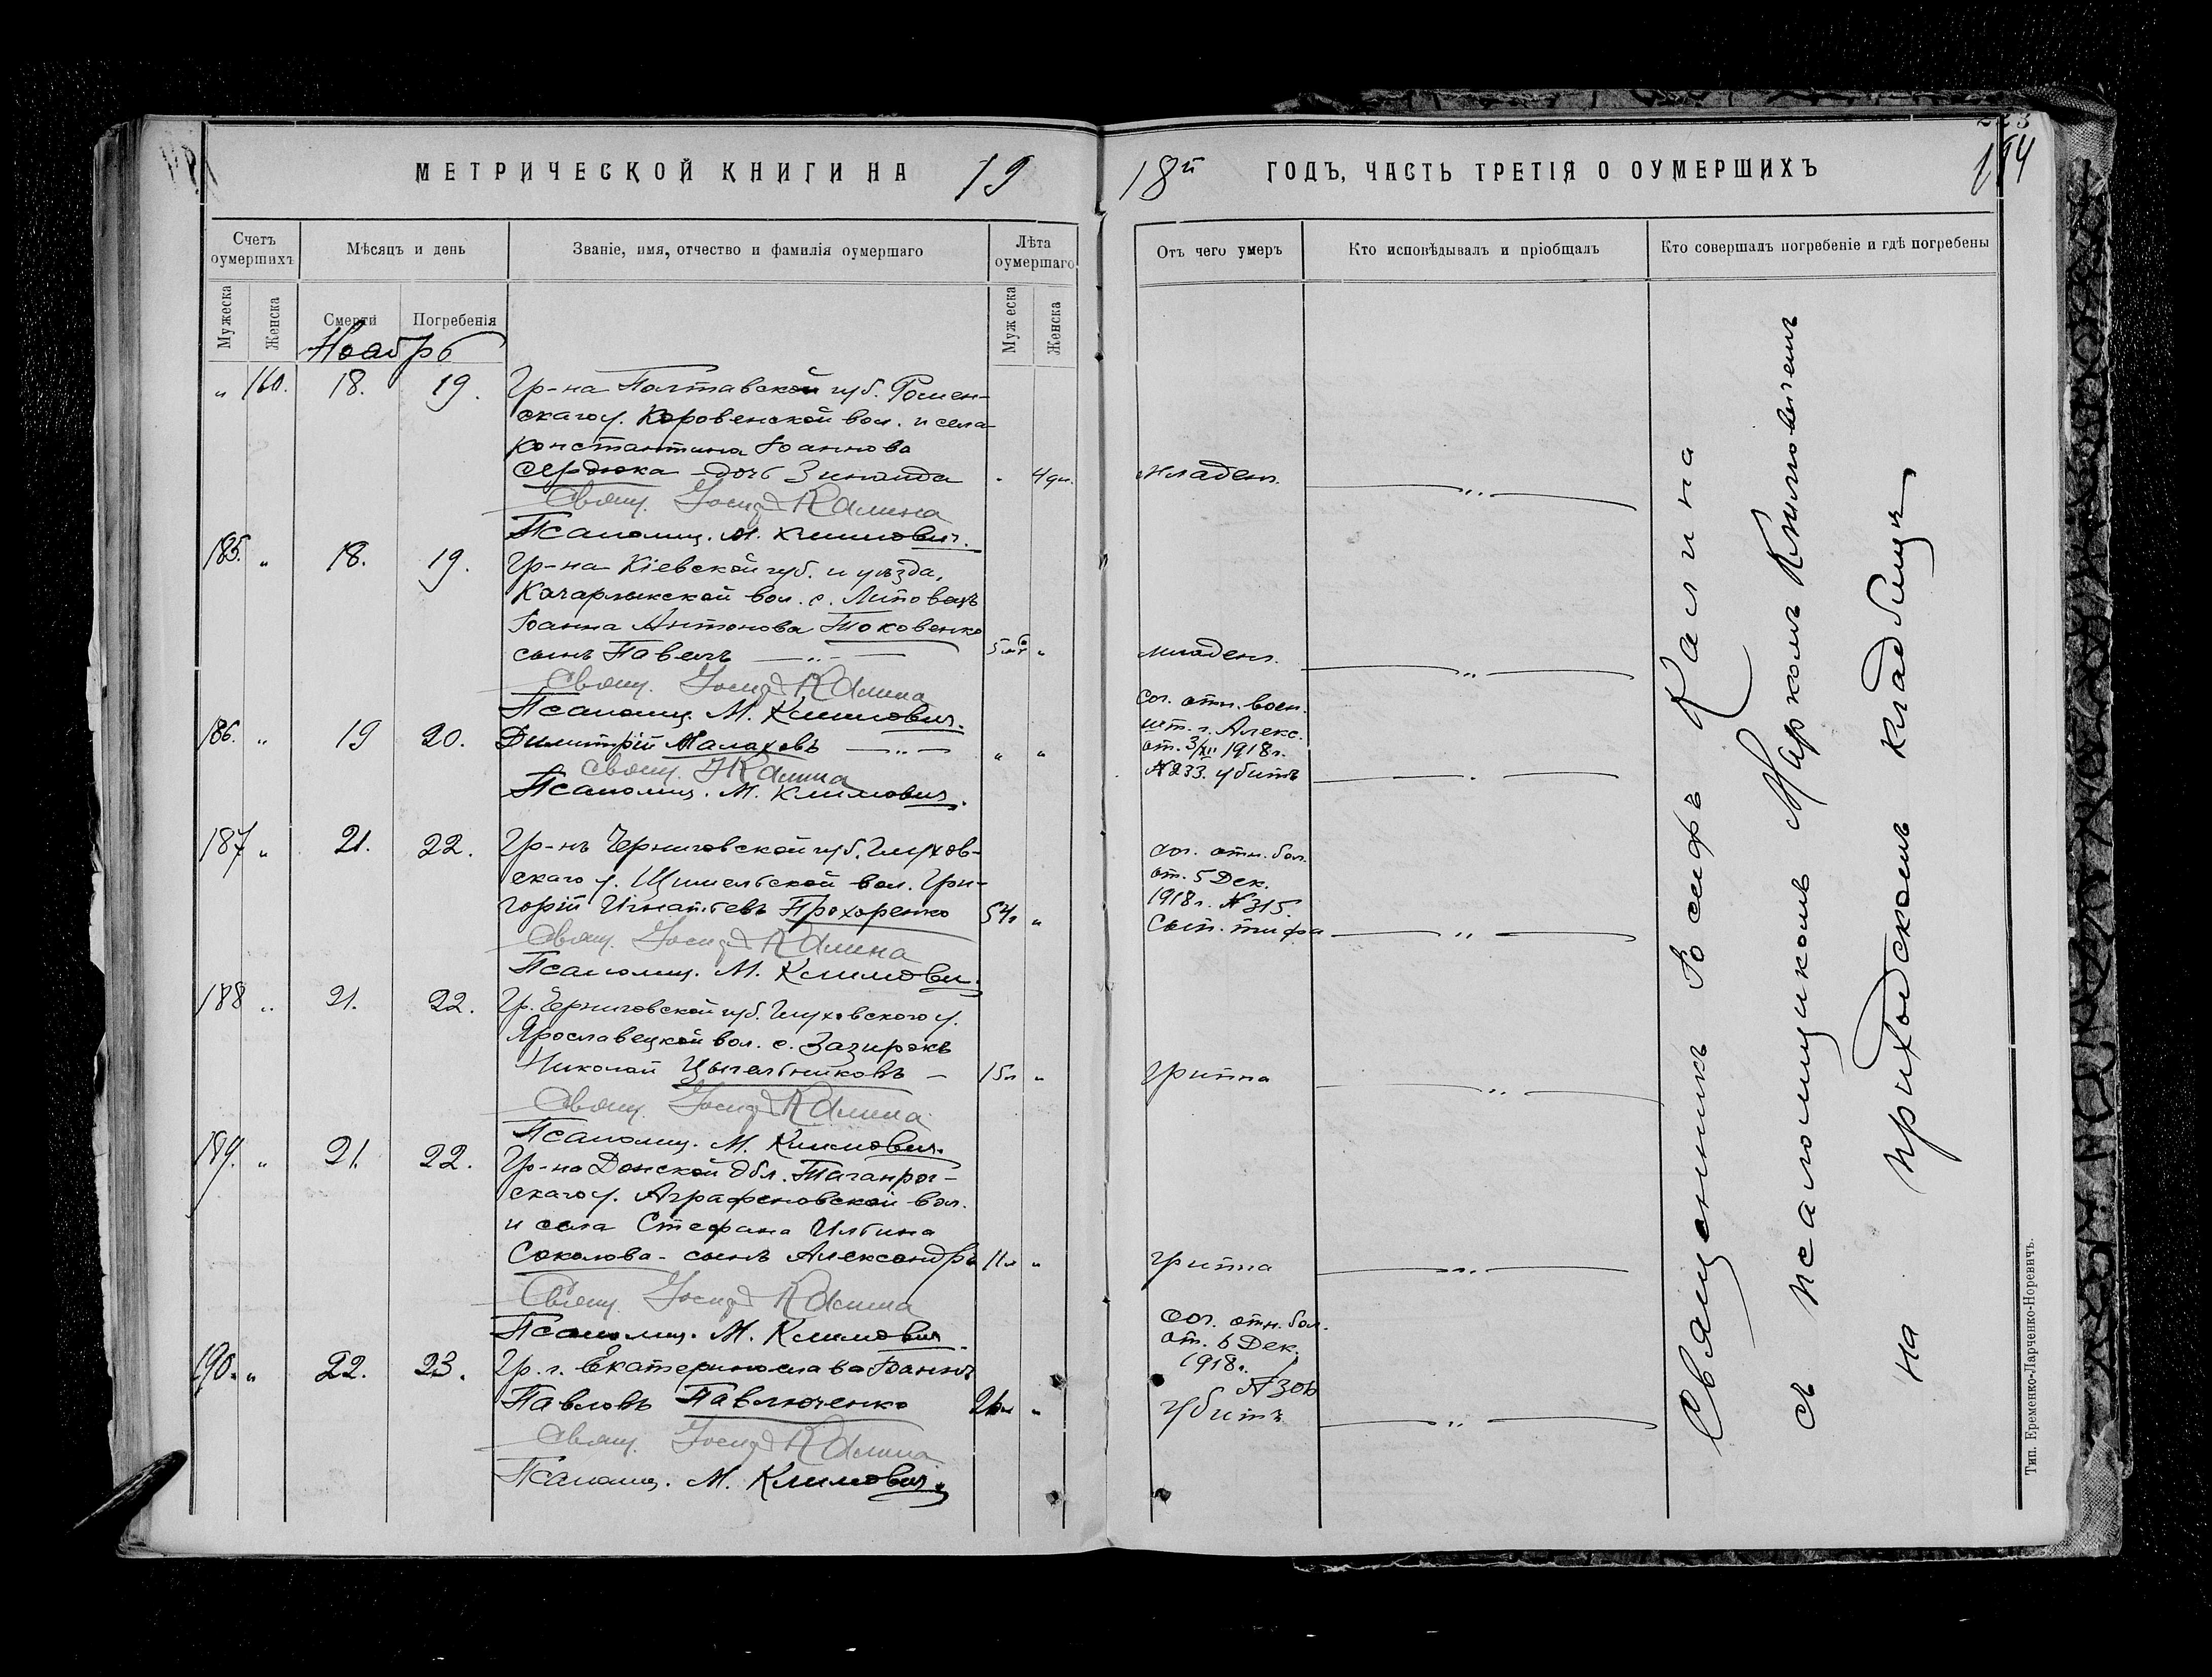 МЕТРИЧЕСКОЙ КНИГИ НА 19 18й ГОДЪ, ЧАСТЬ ТРЕТІЯ О ОУМЕРШИХЪ
194
Счетъ оумершихъ
Мѣсяцъ и день
Званіе, имя, отчество и фамилія оумершаго
Лѣта оумершаго
Отъ чего умеръ
Кто исповѣдывалъ и пріобщалъ
Кто совершалъ погребеніе и гдѣ погребены
Мужеска
Женска
Смерти
Погребенія
Мужеска
Женска
Ноябрь
„ 160. 18. 19. Гр-на Полтавской губ. Ромен-
скаго у. Коровенской вол. и села
Константина Іоаннова
Сердюка - дочь Зинаида „ 4 дн. младен. —„—
Свящ. Іосиф Калина
Псаломщ. М. Климович.
185. „ 18. 19. Гр-на Кіевской губ. и уѣзда,
Качарлыкской вол. с. Липовецъ
Іоанна Антонова Токовенко
сынъ Павелъ —„— „ младен. —„—
Свящ. Іосиф Калина
Псаломщ. М. Климович.
186. „ 19 20. Димитрій Малаховъ —„— „ „
сог. отн. воен.
шт. г. Алекс.
от. 3/XII 1918 г.
№ 233. убитъ
Свящ. І Калина
Псаломщ. М. Климович.
187 „ 21. 22. Гр-нъ Черниговской губ. Глухов-
скаго у. Шишельской вол. Гри-
горій Игнатьевъ Прохоренко 54 г „
сог. отн. бол.
от. 5 Дек.
1918 г. № 315.
сып. тифа —„—
Свящ. Іосиф Калина
Псаломщ. М. Климович.
188 „ 21. 22. Гр. Черниговской губ. Глуховского у.
Ярославецкой вол. с. Зазирокъ
Николай Цыгельниковъ — 15 л „ гриппа —„—
Свящ. Іосиф Калина
Псаломщ. М. Климович.
189. „ 21. 22. Гр-на Донской Обл. Таганрог-
скаго у. Аграфеновской вол.
и села Стефана Ильина
Соколова - сынъ Александръ 11 л „ гриппа —„—
Свящ. Іосиф Калина
Псаломщ. М. Климович
190. „ 22. 23. Гр. г. Екатеринослава Іоаннъ
Павловъ Павлюченко „
сог. отн. бол.
от. 6 Дек.
1918 г.
убитъ —„—
Свящ. Іосиф Калина
Псаломщ. М. Климович.
Священникъ Іосифъ Калина
съ псаломщикомъ Маркомъ Климовичемъ
на приходскомъ кладбищѣ
Тип. Еременко-Ларченко-Норевичъ.